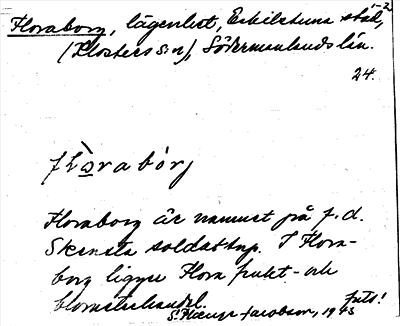 Floraborg, lägenhet, Eskilstuna stad, 1-2
(Klosters sn), Södermanlands län.
24.
flòrabòrj
Floraborg är namnet på f.d.
Skensta soldattrp. I Flora-
borg ligger Flora frukt- och
blomsterhandel. foto!
Jacobson, 1943